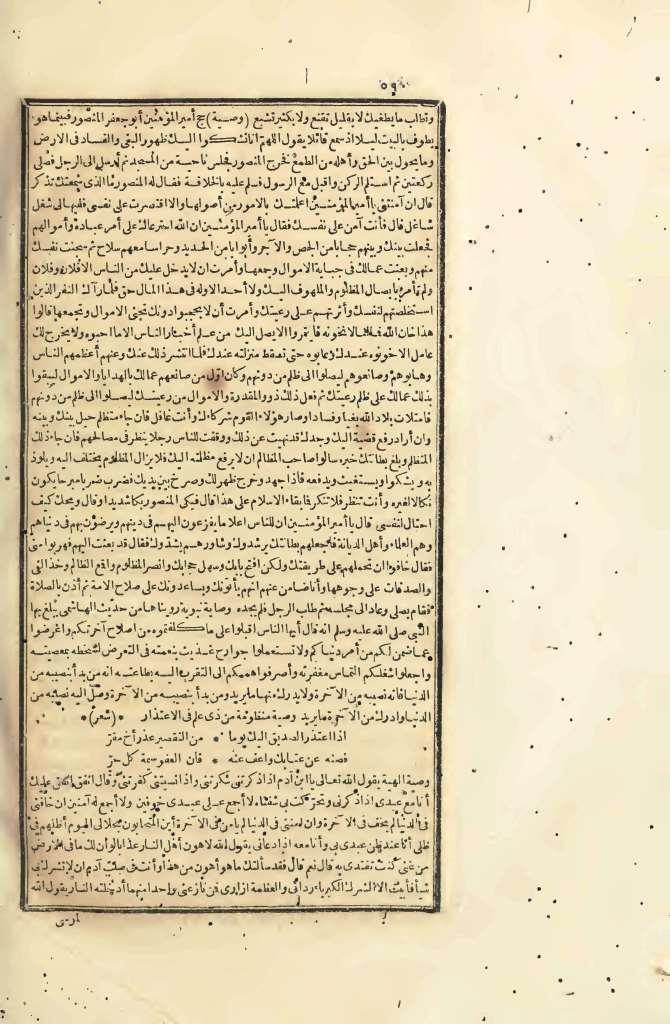 ٥٩٠
وتطلب ما يطغيك لا بقليل تقنع ولا بكثير تشبع (وصية) حج أمير المؤمنين أبو جعفر المنصور فبينما هو
يطوف بالبيت ليلا اذ سمع قائلا يقول اللهم انا نشكوا اليك ظهور البغى والفساد فى الارض
وما يحول بين الحق وأهله من الطمع فخرج المنصور فجلس ناحية من المسجد ثم أرسل الى الرجل فصلى
ركعتين ثم استلم الركن واقبل مع الرسول فسلم عليه بالخلافة فقال له المنصور ما الذى سمعتك تذكر
قال ان آمنتنى يا أمير المؤمنين اعلمتك بالامور من أصولها والا اقتصرت على نفسى ففيها لى شغل
شاغل قال فأنت آمن على نفسك فقال يا أمير المؤمنين ان الله استرعاك على أمر عباده وأموالهم
فجعلت بينك وبينهم حجابا من الجص والآجر وأبوابا من الحديد وحراسا معهم سلاح ثم سجنت نفسك
منهم وبعثت عمالك فى جباية الاموال وجمعها وأمرت ان لا يدخل عليك من الناس الا فلان وفلان
ولم تأمر بايصال المظلوم والملهوف اليك ولا أحد الا وله فى هذا المال حق فلما رآك النفر الذين
استخلصتهم لنفسك وآثرتهم على رعيتك وأمرت أن لا يحجبوا دونك تجبى الاموال وتجمعها قالوا
هذا خان الله فلنا لا نخونه فائتمروا ألا يصل اليك من علم أخبار الناس الا ما احبوه ولا يخرج لك
عامل الا خونوه عندك وعابوه حتى تسقط منزلته عندك فلما انتشر ذلك عنك وعنهم أعظمهم الناس
وهابوهم وصانعوهم ليصلوا الى ظلم من دونهم وكان اول من صانعهم عمالك بالهدايا والاموال ليقوا
بذلك عمالك على ظلم رعيتك ثم فعل ذلك ذوو المقدرة والاموال من رعيتك ليصلوا الى ظلم من دونهم
فامتلات بلاد الله بغيا وفسادا وصار هؤلاء القوم شركاءك وأنت غافل فان جاء متظلم حيل بينك وبينه
وان أراد رفع قضية اليك وجدك قد نهيت عن ذلك ووقفت للناس رجلا ينظر فى مصالحهم فان جاء ذلك
المتظلم وبلغ بطانتك خبره سألوا صاحب المظالم ان لا يرفع مظلمته اليك فلا يزال المظلوم يختلف اليه ويلوذ
به ويشكو ويستغيث ويدفعه فاذا جهد وخرج ظهر لك وصرخ بين يديك فضرب ضربا مبرحا يكون
نكالا لغيره وأنت تنظر فلا تنكر فما بقاء الاسلام على هذا قال فبكى المنصور بكاء شديدا وقال ويحك كيف
احتال لنفسى قال يا أمير المؤمنين ان للناس اعلاما يفزعون اليهم فى دينهم ويرضون بهم فى دنياهم
وهم العلماء وأهل الديانة فاجعلهم بطانتك يرشدوك وشاورهم يسددوك فقال قد بعثت اليهم فهربوا منى
فقال خافوا ان تحملهم على طريقتك ولكن افتح بابك وسهل حجابك وانصر المظلوم واقمع الظالم وخذ الفى
والصدقات على وجوهها وأنا ضامن عنهم انهم يأتونك ويساعدونك على صلاح الامة ثم أذن بالصلاة
فقام يصلى وعاد الى مجلسه ثم طلب الرجل فلم يجده وصية نبوية رويناها من حديث الهاشمى يبلغ بها
النبى صلى الله عليه وسلم انه قال أيها الناس اقبلوا على ما كلفتموه من اصلاح آخرتكم واعرضوا
عما ضمن لكم من أمر دنياكم ولا تستعملوا جوارح غذيت بنعمته فى التعرض لسخطه بمعصيته
واجعلوا شغلكم التماس مغفرته وأصرفوا هممكم الى التقرب اليه بطاعته انه من بدأ بنصيبه من
الدنيا فاته نصيبه من الآخرة ولا يدرك منها ما يريد ومن بدأ بنصيبه من الآخرة وصل اليه نصيبه من
الدنيا وادرك من الآخرة ما يريد وصية منظومة من ذى علم فى الاعتذار *(شعر)*
اذا اعتذر الصديق اليك يوما * من التقصير عذر أخ مقر
فصنه عن عتابك واعف عنه * فان العفو سمة كل حر
وصية الهية يقول الله تعالى يا ابن آدم اذا ذكرتنى شكرتنى واذا نسيتنى كفرتنى وقال انفق انفق عليك
أنا مع عبدى اذا ذكرنى وتحركت بى شفتاه لا أجمع على عبدى خوفين ولا أجمع له آمنين ان خافنى
فى الدنيا لم يخف فى الآخرة وان أمننى فى الدنيا لم يأمن فى الآخرة أين المتحابون بجلالى اليوم أظلهم فى
ظلى أنا عند ظن عبدى بى وأنا معه اذا دعانى يقول الله لاهون أهل النار عذابا لو أن لك ما فى الارض
من شئ كنت تفتدى به قال نعم قال فقد سألتك ما هو أهون من هذا وأنت فى صلب آدم ان لا تشرك بى
شيأ فأبيت الا الشرك الكبرياء ردائى والعظمة ازارى فمن نازعنى واحدا منهما أدخلته النار يقول الله